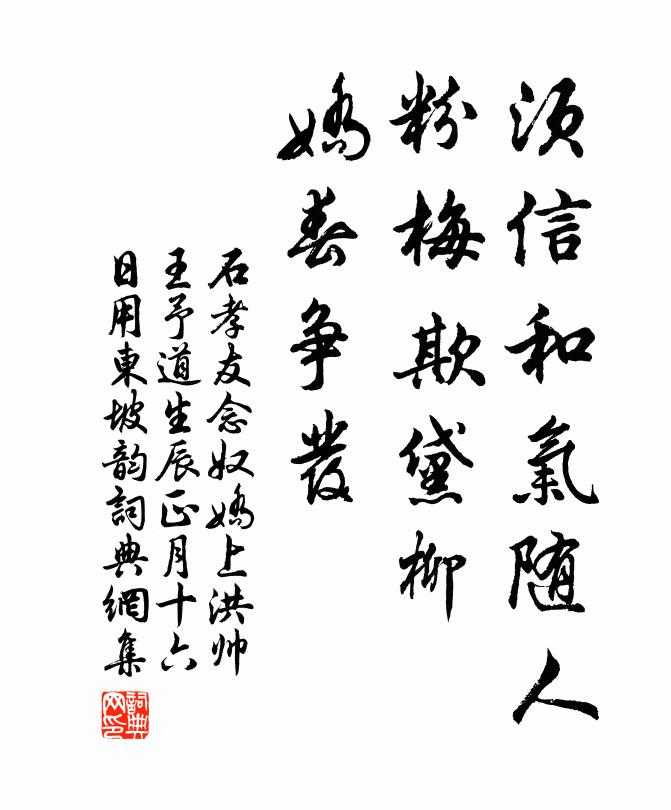 須信和氣隨人
粉梅欺黛柳
嬌春爭發
石孝友念奴嬌上洪帅
王予道生辰正月十六
日用東坡韵詞典網集
詞典
网印